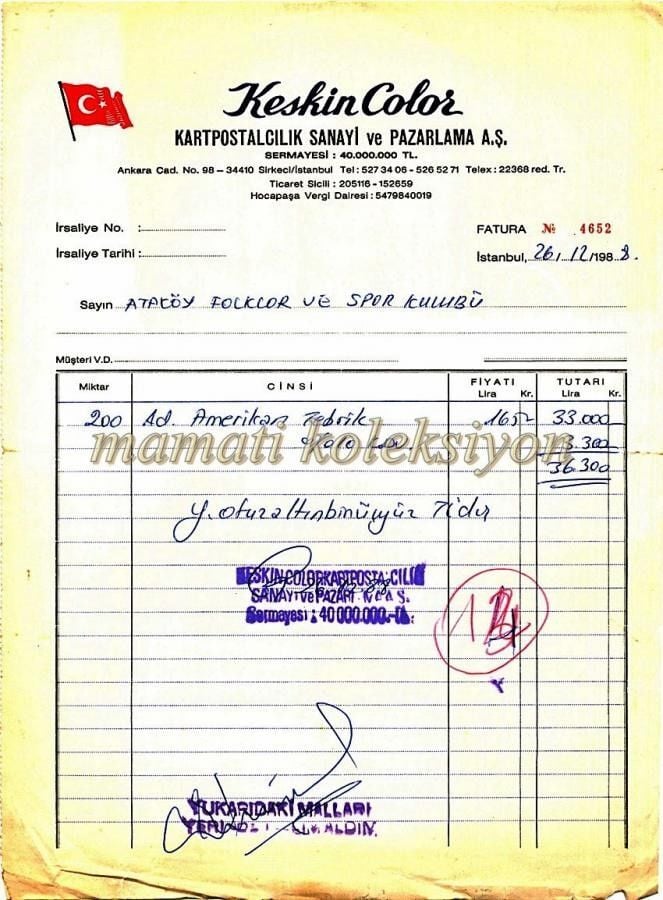 Keskin Color
KARTPOSTALCILIK SANAYİ ve PAZARLAMA A.Ş.
SERMAYESİ : 40.000.000 TL.
Ankara Cad. No. 98 - 34410 Sirkeci/İstanbul Tel : 527 34 06 - 526 52 71 Telex : 22368 red. Tr.
Ticaret Sicili : 205116 - 152659
Hocapaşa Vergi Dairesi : 5479840019
İrsaliye No. :
FATURA № 4652
İrsaliye Tarihi :
İstanbul, 26/12/1988.
Sayın ATAKÖY FOLKLOR VE SPOR KULUBÜ
Müşteri V.D.
Miktar CİNSİ FİYATI Lira Kr. TUTARI Lira Kr.
200 Ad. Amerikan Tebrik 165 33.000
3.300
mamati koleksiyon
36.300
Y. otuzaltıbinüçyüz Tldır
KESKİN COLOR KARTPOSTALCILIK
SANAYİ ve PAZARLAMA A.Ş.
Sermayesi : 40.000.000.-TL.
YUKARIDAKİ MALLARI
ALDIM.